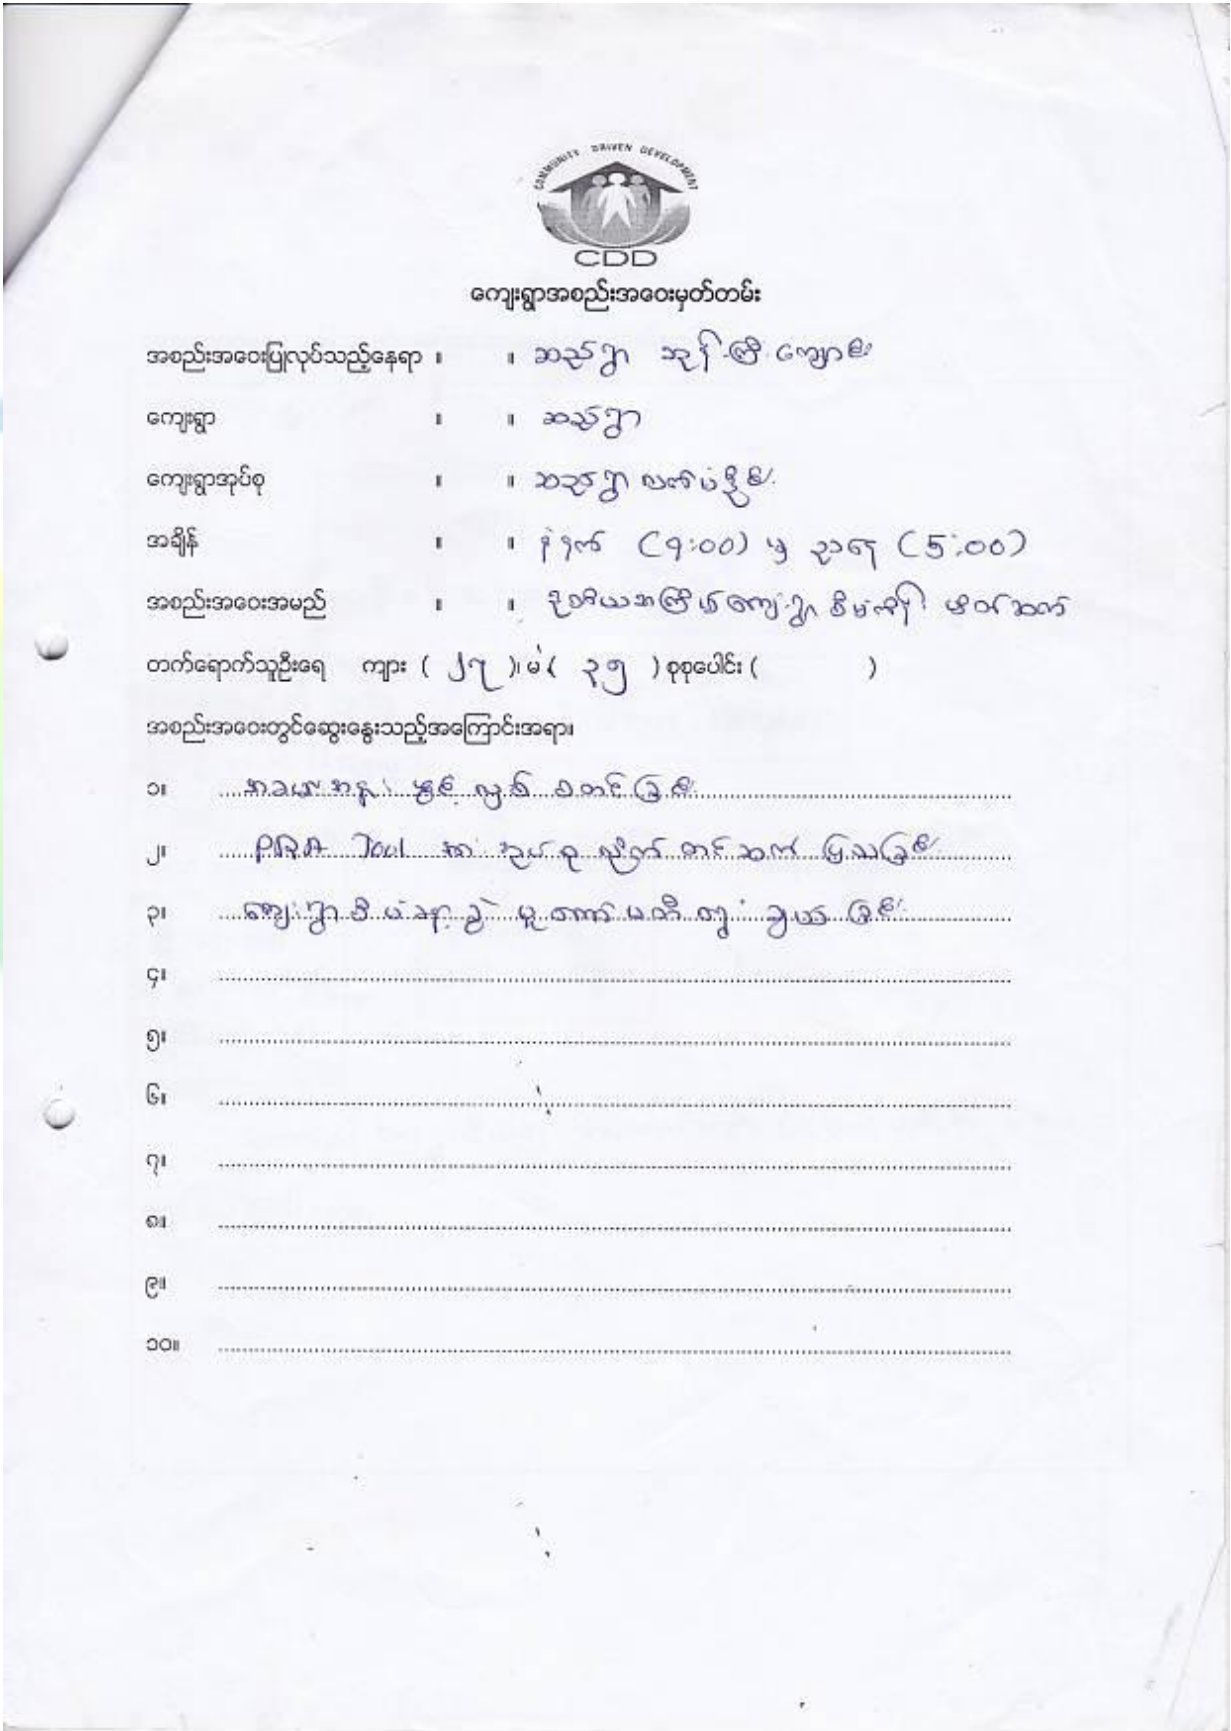 COMMUNITY DRIVEN DEVELOPMENT
CDD
ကျေးရွာအစည်းအဝေးမှတ်တမ်း
အစည်းအဝေးပြုလုပ်သည့်နေရာ ။ ။ ဆည်ရွာ ဘုန်းကြီးကျောင်း
ကျေးရွာ ။ ။ ဆည်ရွာ
ကျေးရွာအုပ်စု ။ ။ ဆည်ရွာ
အချိန် ။ ။ နံနက် (9:00) မှ ညနေ (5:00)
အစည်းအဝေးအမည် ။ ။ ဒုတိယအကြိမ် ကျေးရွာ စီမံကိန်း မိတ်ဆက်
တက်ရောက်သူဦးရေ ကျား ( ၂၇ )၊ မ ( ၃၅ ) စုစုပေါင်း ( )
အစည်းအဝေးတွင်ဆွေးနွေးသည့်အကြောင်းအရာ၊
၁။ အခမ်းအနား ဖွင့်လှစ်
၂။ PRA Tool အား အုပ်စုလိုက် တင်ဆက် ပြသခြင်း
၃။ ကျေးရွာ စီမံခန့်ခွဲမှု ကော်မတီ ရွေးချယ်ခြင်း
၄။
၅။
၆။
၇။
၈။
၉။
၁၀။